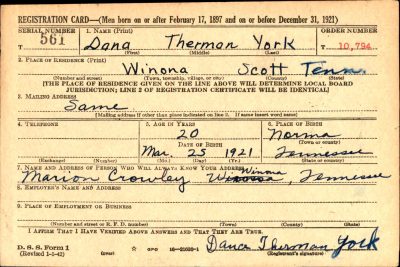 REGISTRATION CARD—(Men born on or after February 17, 1897 and on or before December 31, 1921)
SERIAL NUMBER 1. NAME (Print) ORDER NUMBER
T 561 Dana Therman York T 10,794
(First) (Middle) (Last)
2. PLACE OF RESIDENCE (Print)
Winona Scott Tenn.
(Number and street) (Town, township, village, or city) (County) (State)
[THE PLACE OF RESIDENCE GIVEN ON THE LINE ABOVE WILL DETERMINE LOCAL BOARD
JURISDICTION; LINE 2 OF REGISTRATION CERTIFICATE WILL BE IDENTICAL]
3. MAILING ADDRESS
Same
[Mailing address if other than place indicated on line 2. If same insert word same]
4. TELEPHONE 5. AGE IN YEARS 6. PLACE OF BIRTH
20 Norma
DATE OF BIRTH (Town or county)
Mar. 25 1921 Tennessee
(Exchange) (Number) (Mo.) (Day) (Yr.) (State or country)
7. NAME AND ADDRESS OF PERSON WHO WILL ALWAYS KNOW YOUR ADDRESS
Marion Crowley Winona, Tennessee
8. EMPLOYER'S NAME AND ADDRESS
9. PLACE OF EMPLOYMENT OR BUSINESS
(Number and street or R. F. D. number) (Town) (County) (State)
I AFFIRM THAT I HAVE VERIFIED ABOVE ANSWERS AND THAT THEY ARE TRUE.
D. S. S. Form 1
(Revised 1-1-42) (over) GPO Therman York
(Registrant's signature)